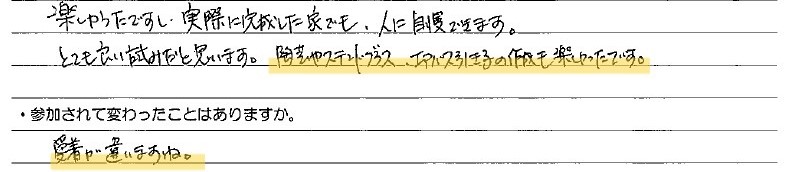 楽しかったですし、実際に完成した家でも、人に自慢できます。
とても良い試みだと思います。陶芸やステンドグラス、の作成も楽しかったです。
・参加されて変わったことはありますか。
愛着が違いますね。